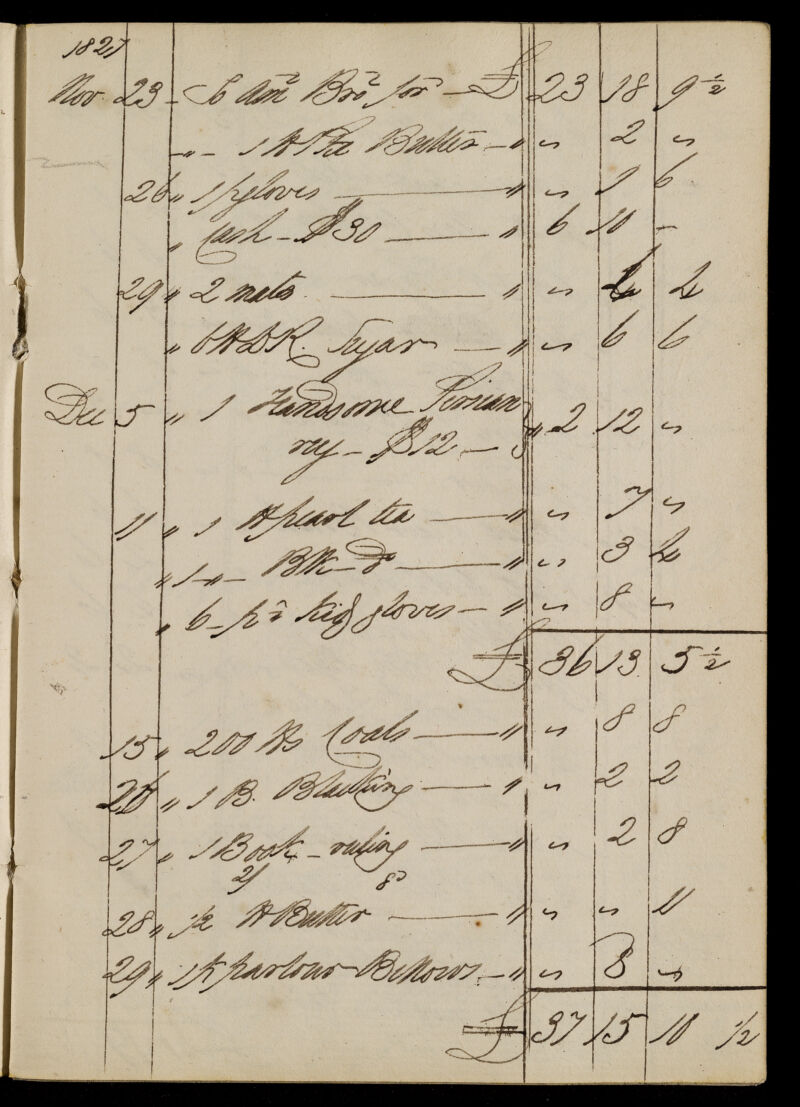 1827
Nov 23 - To Amt Bro for - £ 23 18 9 ½
" - 1 ℔ Butter - " " 2 "
26 " 1 p gloves — " " 1 6
" Cash - $30 — " 6 10 -
29 " 2 mats — " " 4 4
" 6 ℔ L R. Sugar — " " 6 6
Dec 5 " 1 Handsome Persian
rug - $12 - " 2 12 "
11 " 1 ℔ pearl tea — " " 7 "
" 1 - " - Blk - do — " " 3 4
" 6 - prs kid gloves - " " 8 "
£ 36 13 5 ½
15 " 200 ℔s Coals — " " 8 8
26 " 1 B. Blacking — " " 2 2
27 " 1 Book - ruling — " " 2 8
2/ 8d
28 " ½ ℔ Butter — " " " 11
29 " 1 pr parlour Bellows - " " 8 "
£ 37 15 10 ½